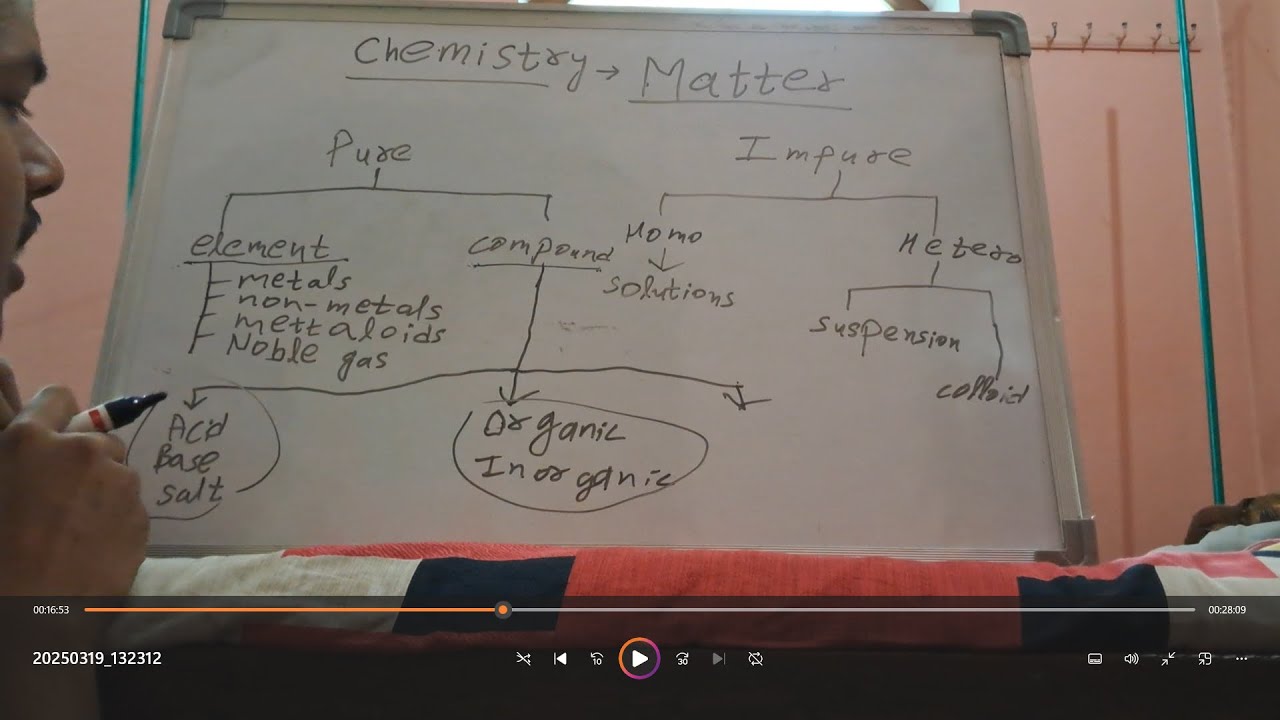 Chemistry → Matter
Pure
Impure
element
compound
Homo
Hetero
metals
non-metals
mettaloids
Noble gas
solutions
suspension
colloid
Acid
Base
salt
Organic
Inorganic
00:16:53
00:28:09
20250319_132312
10
30